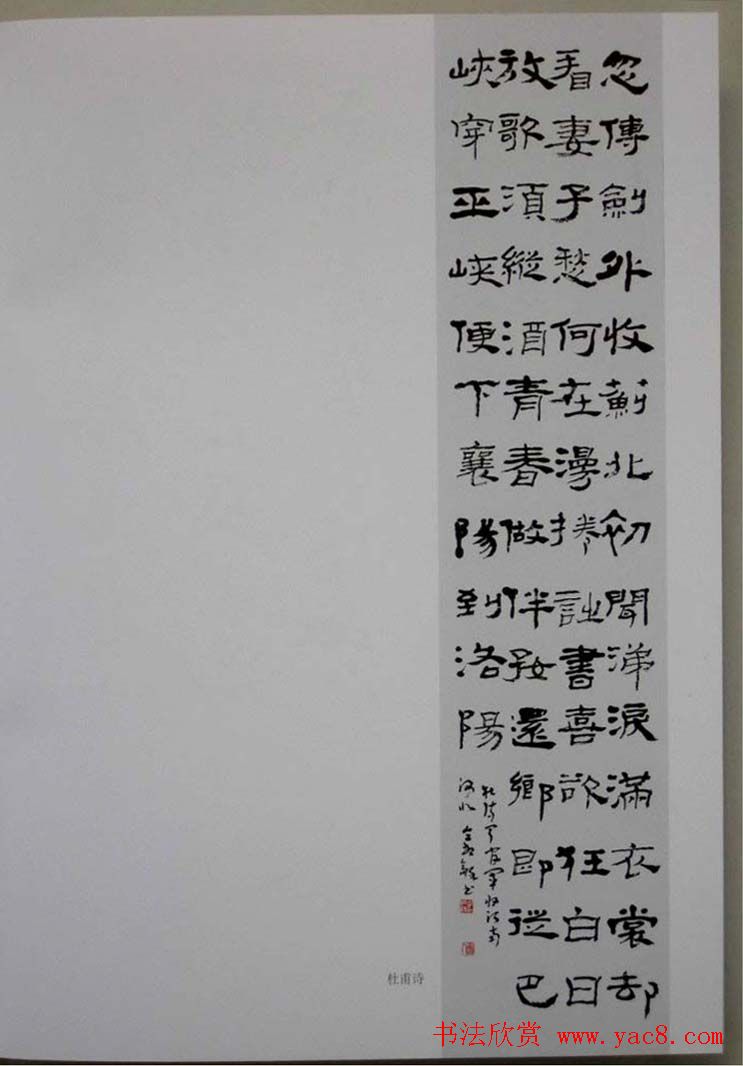 忽傳劍外收薊北初聞涕淚滿衣裳却
看妻子愁何在漫捲詩書喜欲狂白日
放歌須縱酒青春做伴好還鄉即從巴
峽穿巫峽便下襄陽到洛陽
杜詩聞官軍收河南
河北
杜甫诗
书法欣赏 www.yac8.com